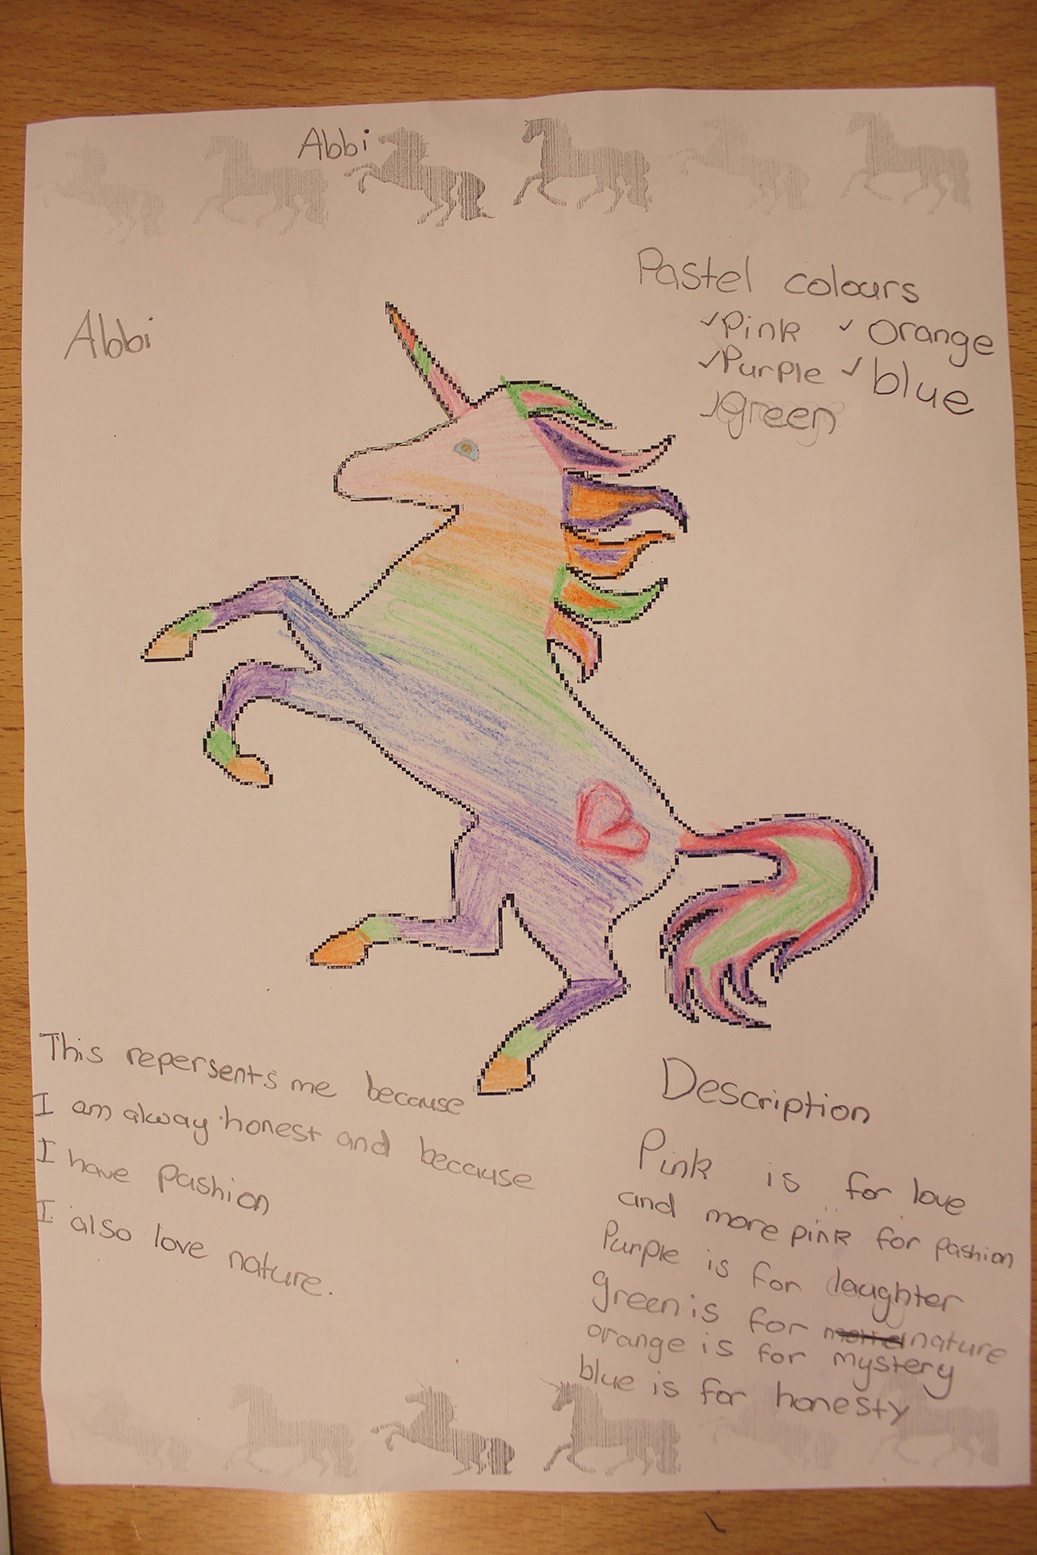 Abbi
Abbi
Pastel colours
✓Pink ✓ Orange
✓Purple ✓ blue
✓green
This repersents me because
I am alway honest and because
I have pashion
I also love nature.
Description
Pink is for love
and more pink for pashion
Purple is for laughter
green is for nature
orange is for mystery
blue is for honesty